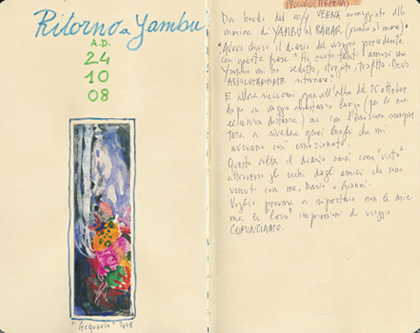 Ritorno a Yambu
A.D.
24
10
08
"Acquario" 2008
PROLOGO (PRIMA)
Da bordo del m/y VEENA ormeggiato alla
marina di YAMBU AL BAHAR (Yambu al mare).
Avevo chiuso il diario del viaggio precedente
con questa frase "Ho avuto tanti amori ma
Yambu mi ha sedotto, stregato, stupito. Devo
ASSOLUTAMENTE ritornare"
E allora eccomi qua all'alba del 25 ottobre
dopo un viaggio abbastanza lungo (per la non
eccessiva distanza) ma con l'emozione sempre
tesa a rivedere quei luoghi che mi
avevano così emozionato.
Questa volta il diario sarà come "visto"
attraverso gli occhi degli amici che sono
venuti con me, Dario e Gianni.
Voglio provare a riportare non le mie
ma le "loro" impressioni di viaggio
COMINCIAMO.